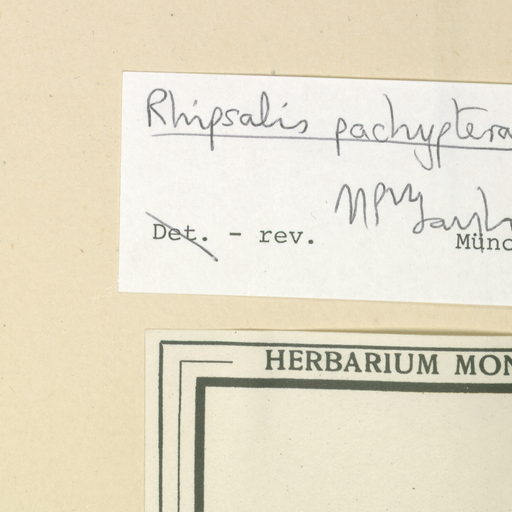 Rhipsalis pachyptera
Det. - rev.
Münc
HERBARIUM MON